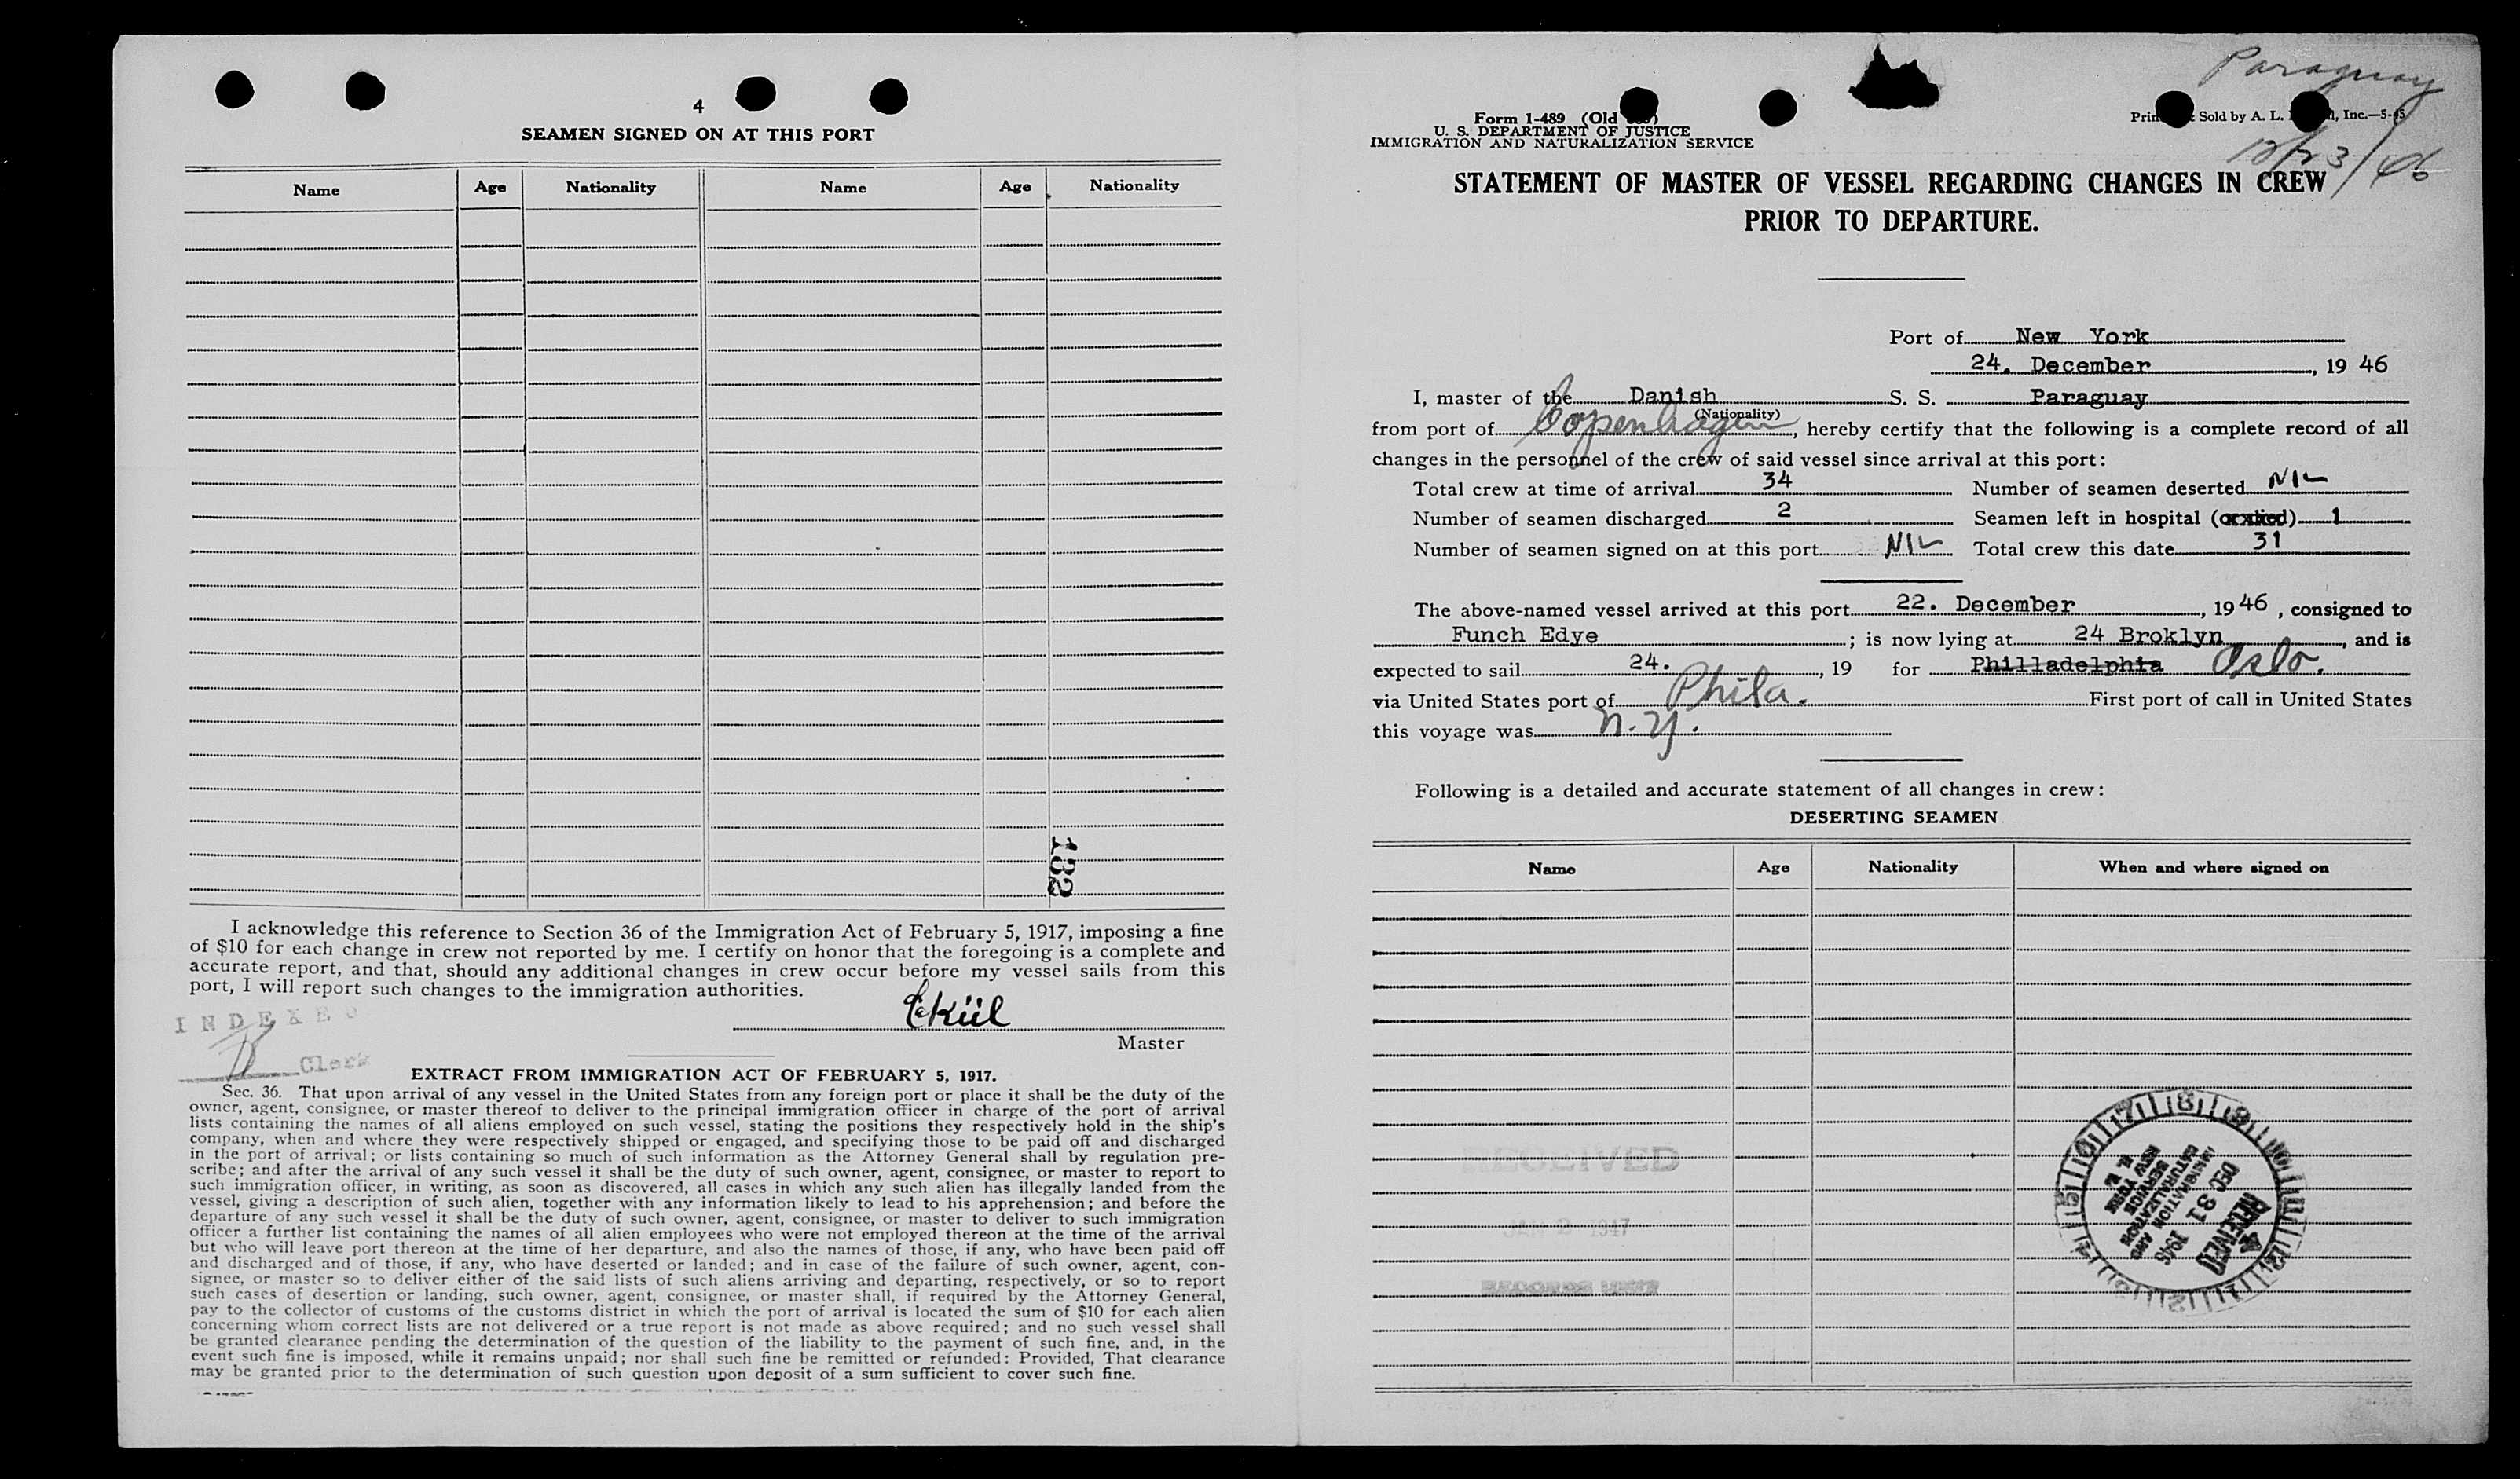 4
SEAMEN SIGNED ON AT THIS PORT
Name Age Nationality Name Age Nationality
132
I acknowledge this reference to Section 36 of the Immigration Act of February 5, 1917, imposing a fine
of $10 for each change in crew not reported by me. I certify on honor that the foregoing is a complete and
accurate report, and that, should any additional changes in crew occur before my vessel sails from this
port, I will report such changes to the immigration authorities.
INDEXED
Clerk
Master
EXTRACT FROM IMMIGRATION ACT OF FEBRUARY 5, 1917.
Sec. 36. That upon arrival of any vessel in the United States from any foreign port or place it shall be the duty of the
owner, agent, consignee, or master thereof to deliver to the principal immigration officer in charge of the port of arrival
lists containing the names of all aliens employed on such vessel, stating the positions they respectively hold in the ship's
company, when and where they were respectively shipped or engaged, and specifying those to be paid off and discharged
in the port of arrival; or lists containing so much of such information as the Attorney General shall by regulation pre-
scribe; and after the arrival of any such vessel it shall be the duty of such owner, agent, consignee, or master to report to
such immigration officer, in writing, as soon as discovered, all cases in which any such alien has illegally landed from the
vessel, giving a description of such alien, together with any information likely to lead to his apprehension; and before the
departure of any such vessel it shall be the duty of such owner, agent, consignee, or master to deliver to such immigration
officer a further list containing the names of all alien employees who were not employed thereon at the time of the arrival
but who will leave port thereon at the time of her departure, and also the names of those, if any, who have been paid off
and discharged and of those, if any, who have deserted or landed; and in case of the failure of such owner, agent, con-
signee, or master so to deliver either of the said lists of such aliens arriving and departing, respectively, or so to report
such cases of desertion or landing, such owner, agent, consignee, or master shall, if required by the Attorney General,
pay to the collector of customs of the customs district in which the port of arrival is located the sum of $10 for each alien
concerning whom correct lists are not delivered or a true report is not made as above required; and no such vessel shall
be granted clearance pending the determination of the question of the liability to the payment of such fine, and, in the
event such fine is imposed, while it remains unpaid; nor shall such fine be remitted or refunded: Provided, That clearance
may be granted prior to the determination of such question upon deposit of a sum sufficient to cover such fine.
Paraguay
12/23/46
Form 1-489 (Old
U. S. DEPARTMENT OF JUSTICE
IMMIGRATION AND NATURALIZATION SERVICE
Sold by A. L. Inc.—5-45
STATEMENT OF MASTER OF VESSEL REGARDING CHANGES IN CREW
PRIOR TO DEPARTURE.
Port of New York
24. December, 19 46
I, master of the Danish S. S. Paraguay
(Nationality)
from port of Copenhagen, hereby certify that the following is a complete record of all
changes in the personnel of the crew of said vessel since arrival at this port:
Total crew at time of arrival 34 Number of seamen deserted NIL
Number of seamen discharged 2 Seamen left in hospital (or died) 1
Number of seamen signed on at this port NIL Total crew this date 31
The above-named vessel arrived at this port 22. December, 19 46, consigned to
Funch Edye; is now lying at 24 Broklyn, and is
expected to sail 24., 19 for Philladelphia Oslo.
via United States port of Phila. First port of call in United States
this voyage was N.Y.
Following is a detailed and accurate statement of all changes in crew:
DESERTING SEAMEN
Name Age Nationality When and where signed on
RECEIVED
JAN 2 1947
RECORDS UNIT
RECEIVED
DEC 31
IMMIGRATION AND
NATURALIZATION
SERVICE
NEW YORK